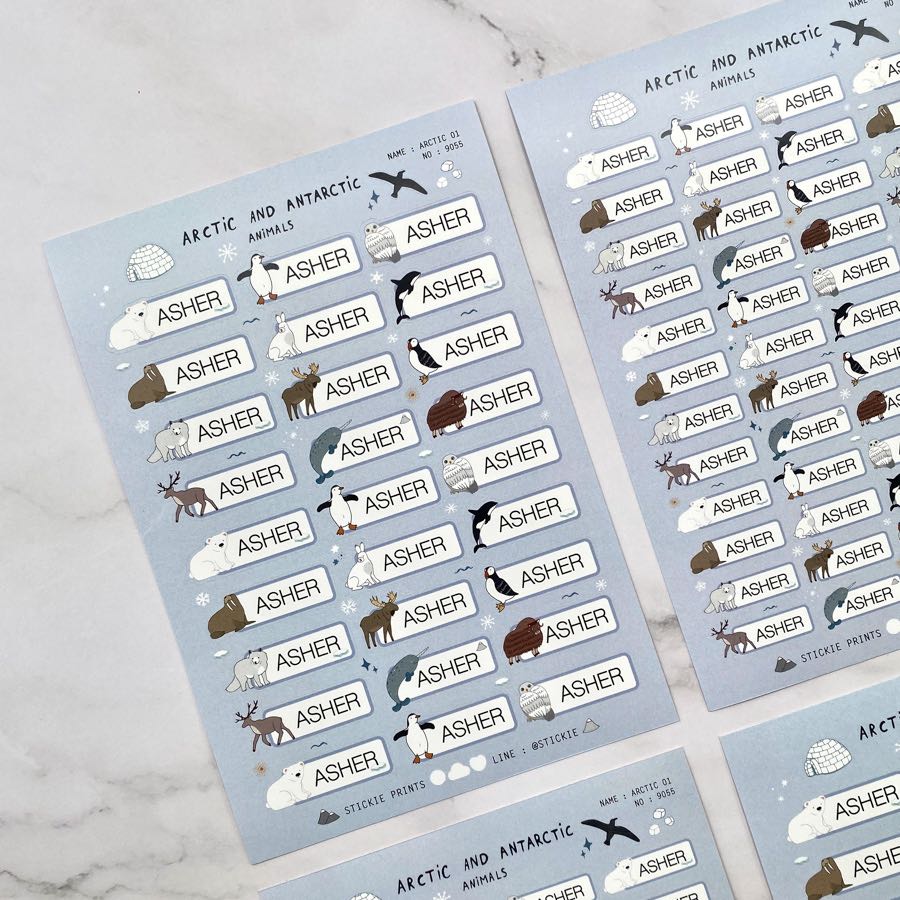 NAME : ARCTIC 01
NO : 9055
ARCTIC AND ANTARCTIC
ANIMALS
ASHER ASHER ASHER
ASHER ASHER ASHER
ASHER ASHER ASHER
ASHER ASHER ASHER
ASHER ASHER ASHER
ASHER ASHER ASHER
ASHER ASHER ASHER
ASHER ASHER ASHER
ASHER ASHER ASHER
STICKIE PRINTS LINE : @STICKIE
NAME
NO
ARCTIC AND ANTARCTIC
ANIMALS
ASHER ASHER ASHER
ASHER ASHER ASHER
ASHER ASHER ASHER
ASHER ASHER ASHER
ASHER ASHER ASHER
ASHER ASHER ASHER
ASHER ASHER ASHER
ASHER ASHER ASHER
ASHER ASHER
ASHER ASHER
ASHER ASHER
ASHER ASHER
STICKIE PRINTS
NAME : ARCTIC 01
NO : 9055
ARCTIC AND ANTARCTIC
ANIMALS
ASHER ASHER
ASHER
ASHER